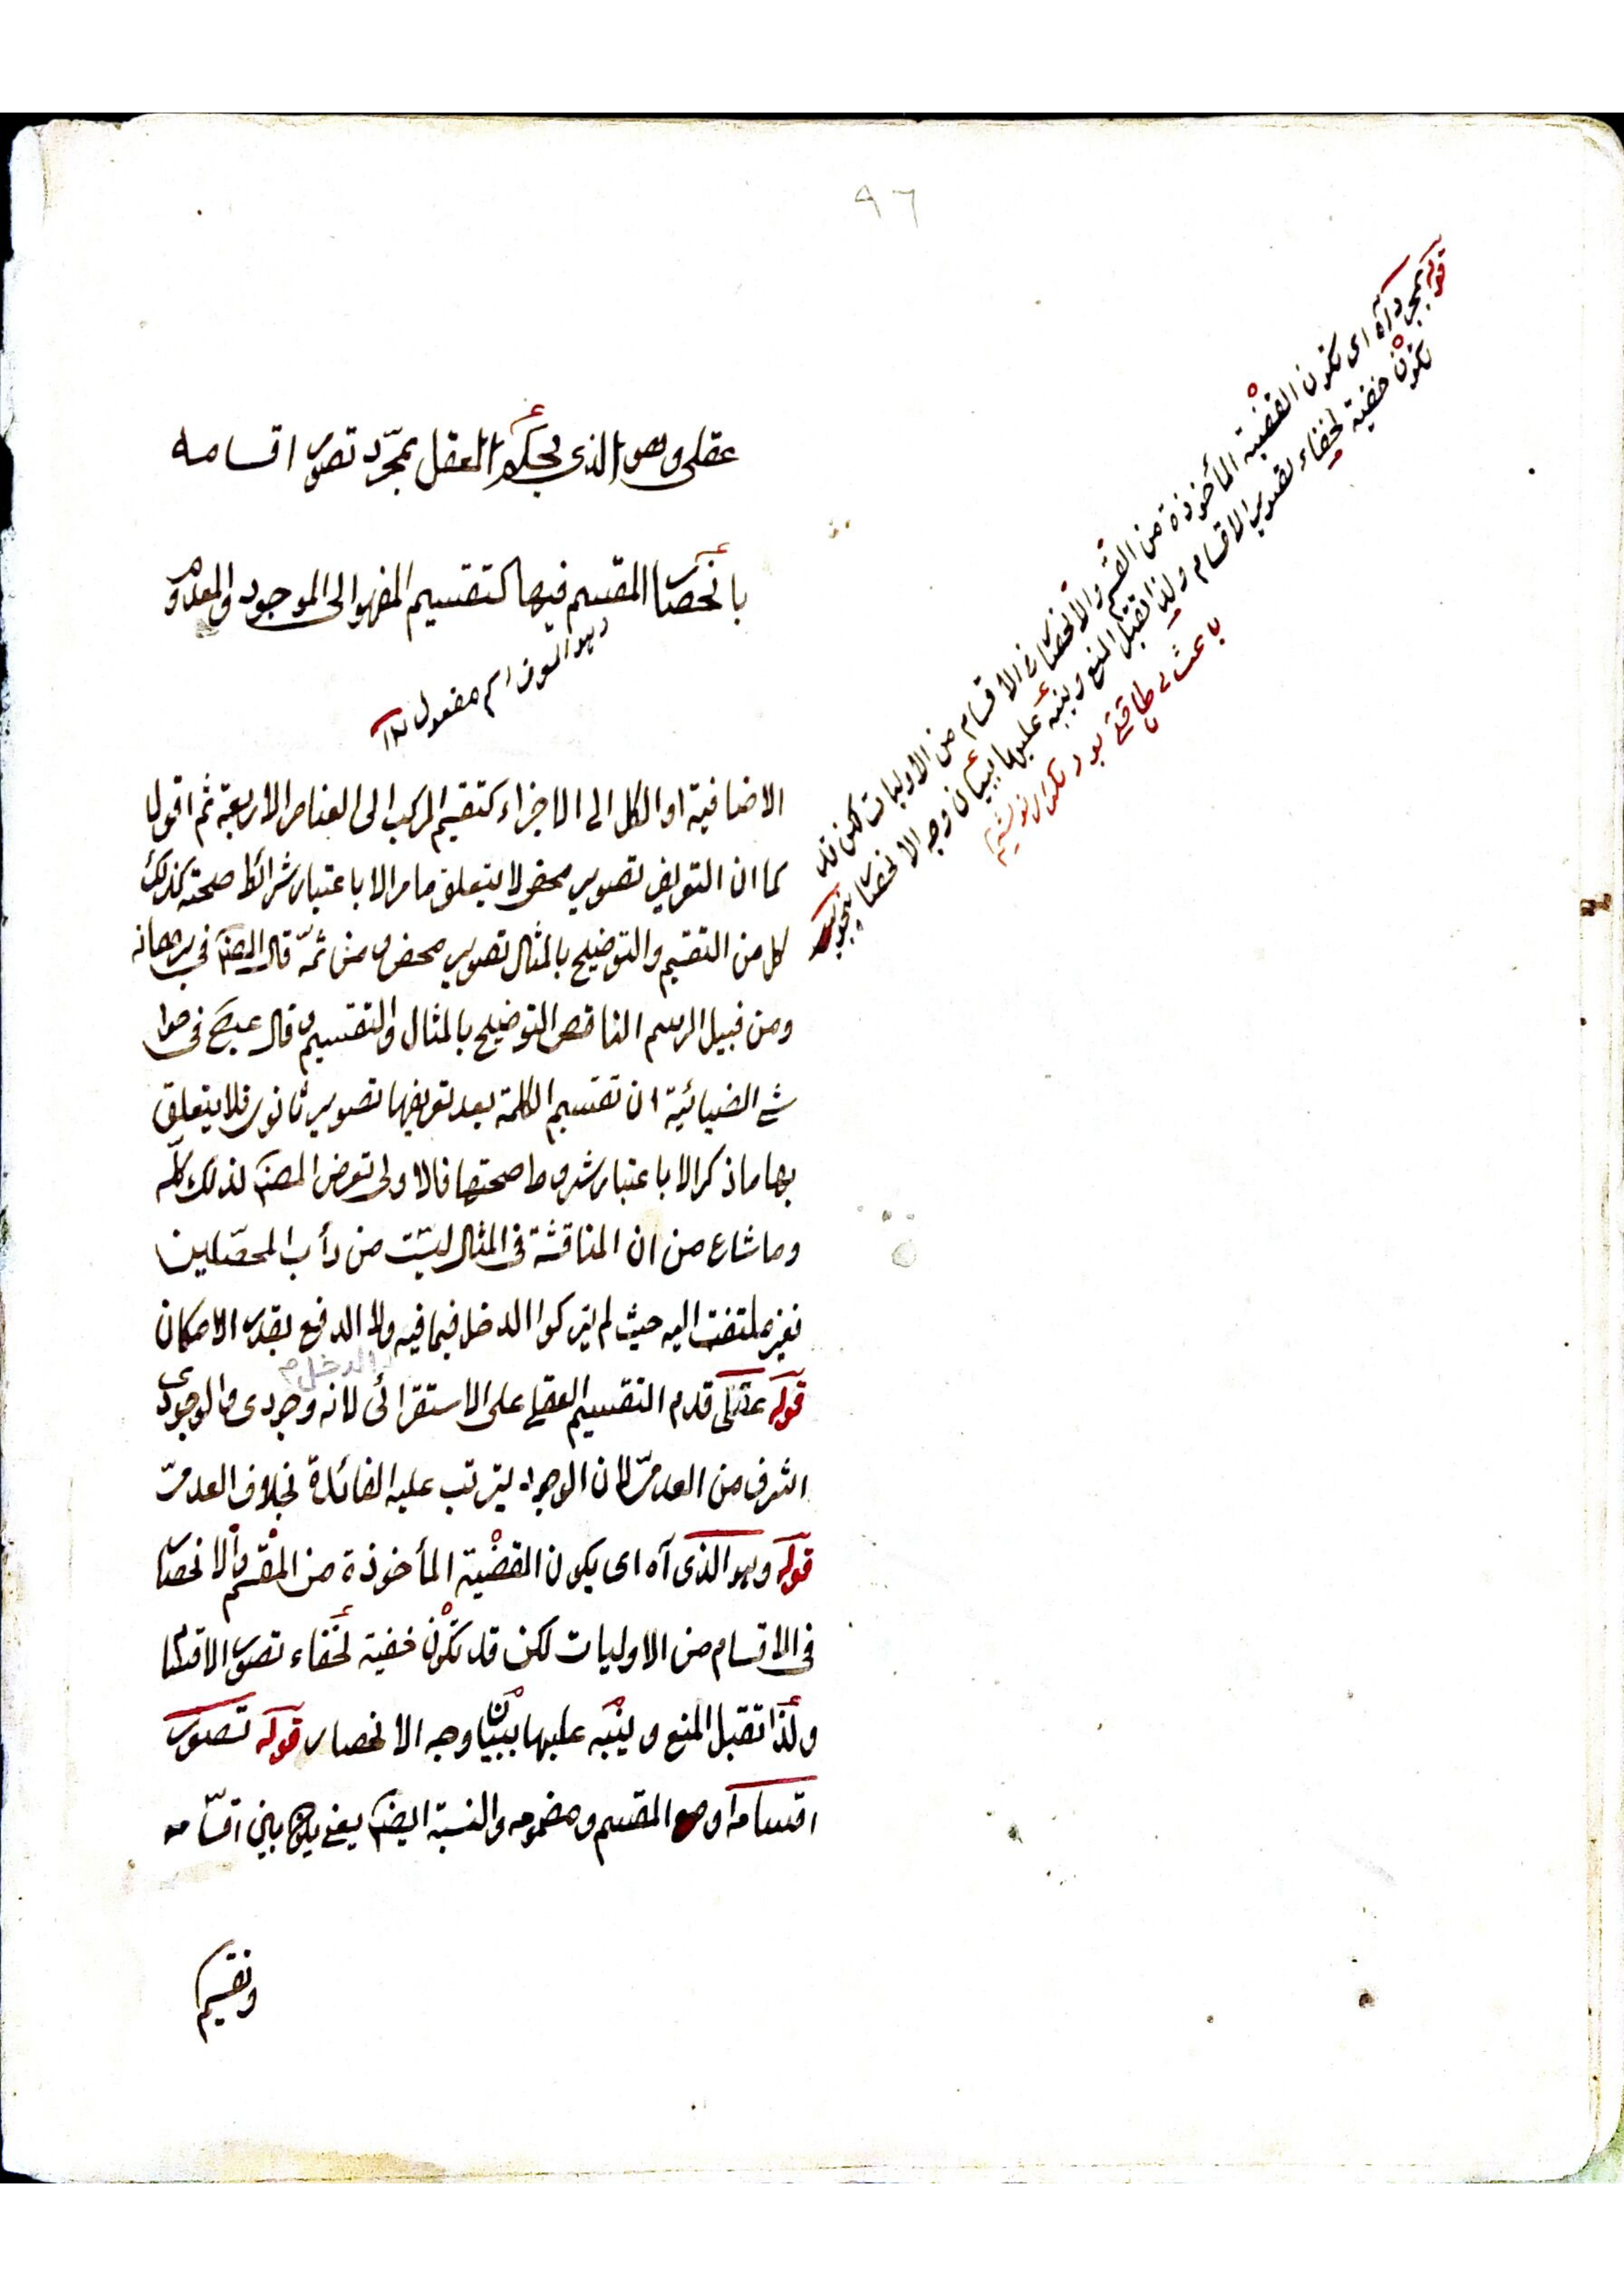 ٩٦
عقلى وهو الذى يحكم العقل بمجرّد تصور اقسامه
بانحصار المقسم فيها كتقسيم المفهوم الى الموجود والمعدوم
اسم مفعول
الاضافية او الكل الى الاجزاء كتقسيم المركب الى العناصر الاربعة ثم اقول
كما ان التعريف تصوير محض لا يتعلق ما مر الا باعتبار شرائط صحته كذلك
كل من التقسيم والتوضيح بالمثال تصوير محض ومن ثمّة قال المصنـ فى برهانه
ومن قبيل الرسم الناقص التوضيح بالمثال والتقسيم وقال عبح فى حوا
شى الضيائية ان تقسيم الكلمة بعد تعريفها تصوير ثانوى فلا يتعلق
بها ما ذكر الا باعتبار شروط صحتها فالاولى تعرض المصنـ لذلك كلّه
وما شاع من ان المناقشة فى المثال ليست من دأب المحصّلين
فغير ملتفت اليه حيث لم يتركوا الدخل فيما فيه ولا الدفع بقدر الامكان
الدخل م
قوله عقلى قدم التقسيم العقلى على الاستقرائى لانه وجودى والوجودى
اشرف من العدمىّ لان الوجود يترتب عليه الفائدة بخلاف العدمىّ
قوله وهو الذى آه اى يكون القضية المأخوذة من المقسم والانحصار
فى الاقسام من الاوليات لكن قد تكون خفية لخفاء تصور الاقسام
ولذا تقبل المنع وينبّه عليها ببيان وجه الانحصار قوله تصور
اقسامه او هو المقسم ومضمومه والنسبة ايضـ يعنى بين اقسامه
وتقسيم
قوله بمجرد آه اى تكون القضية المأخوذة من المقسم والانحصار فى الاقسام من الاوليات لكن قد
تكون خفية لخفاء تصوير الاقسام ولذا تقبل المنع وينبه عليها ببيان وجه الانحصار
باعث بى طاقتى بود تكرار نوشتيم